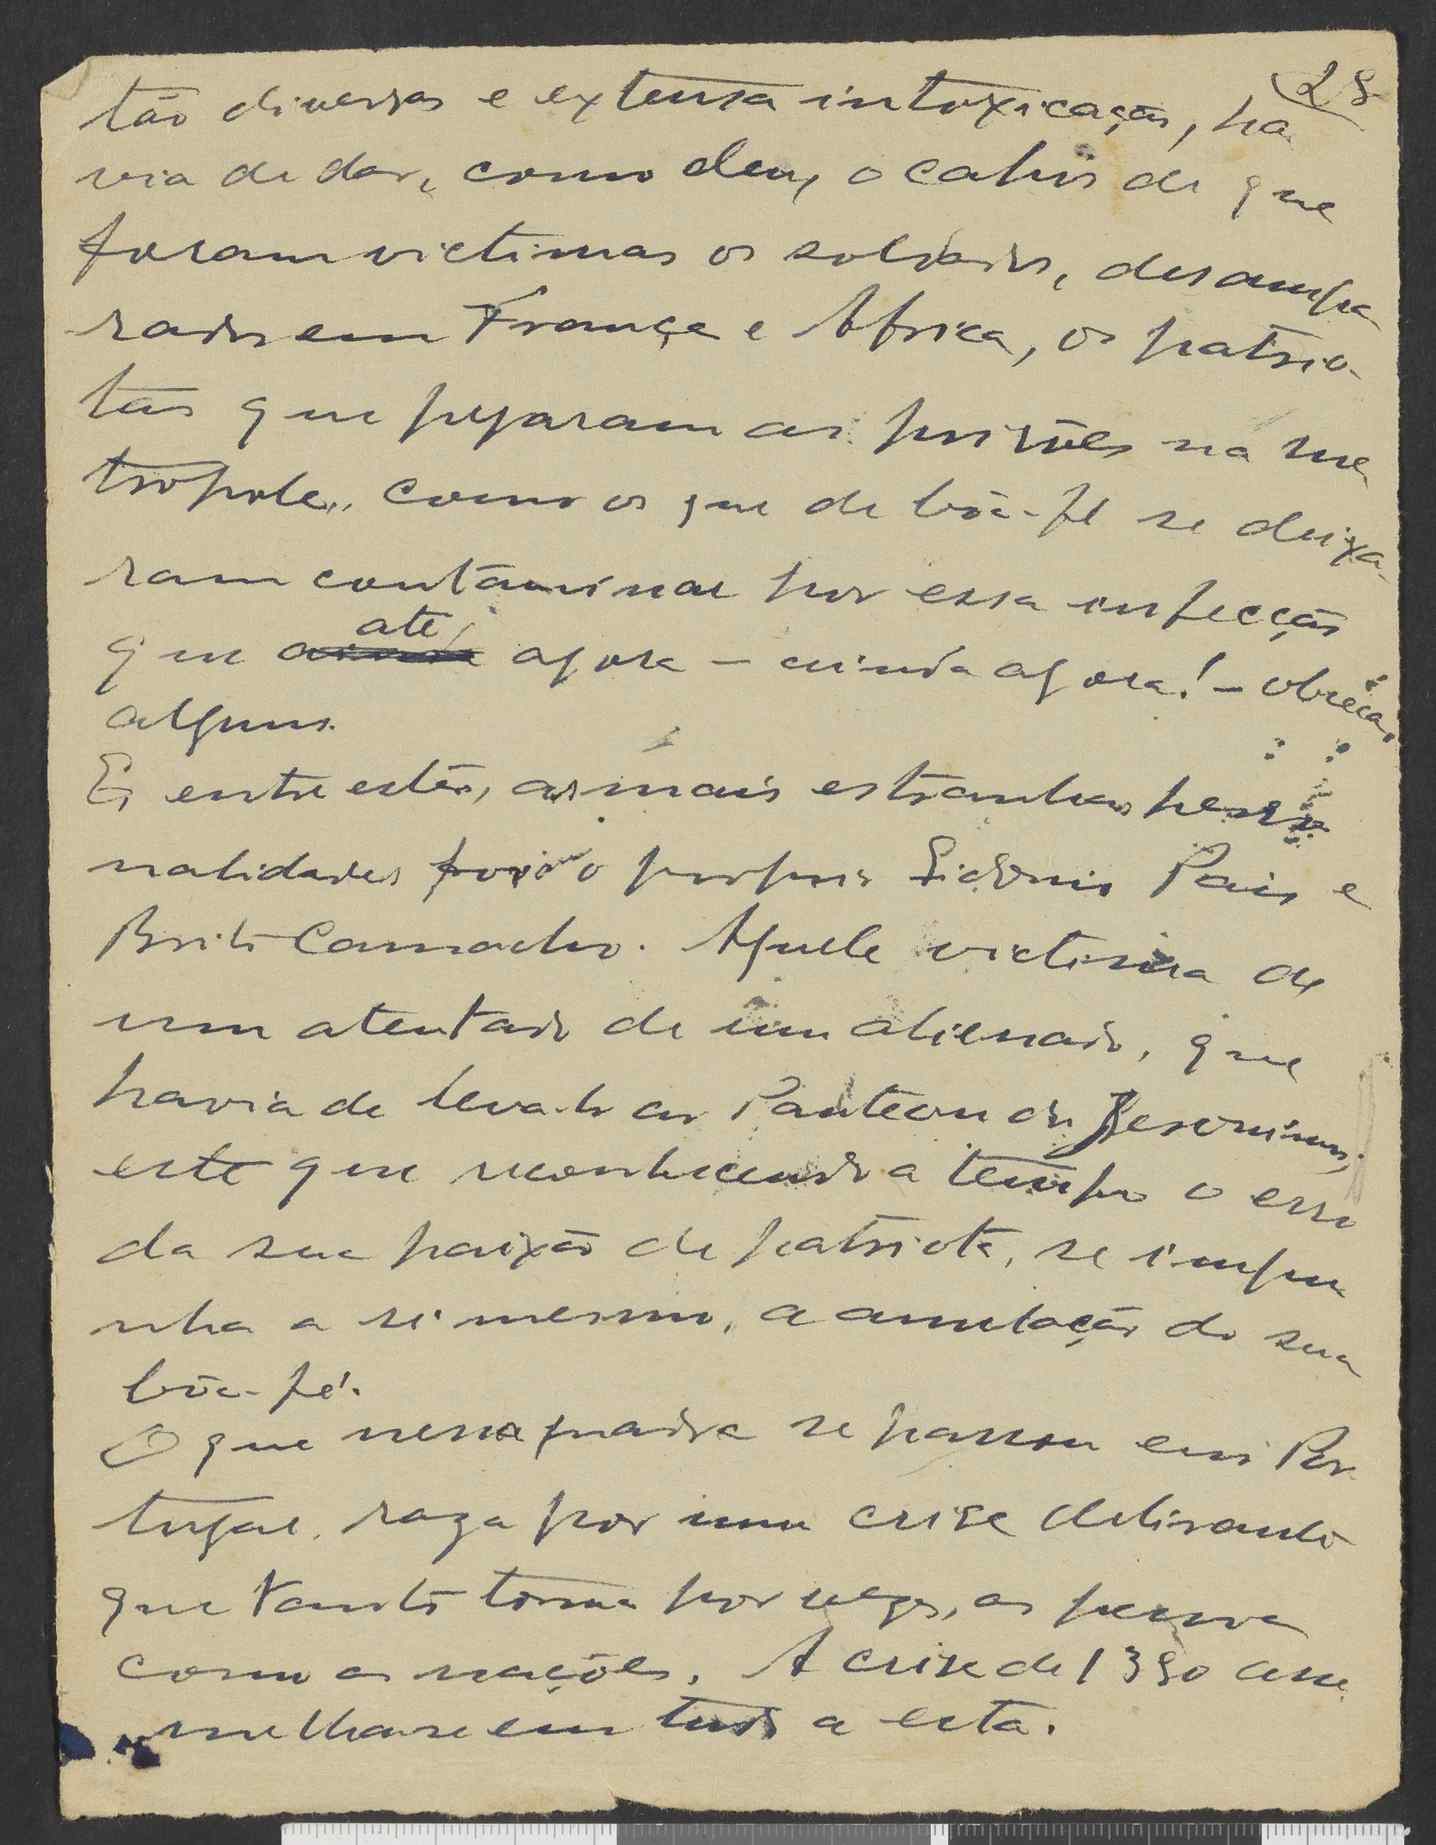 28
tão diversas e extensa intoxicação, ha
via de dar, como deu, o cahos de que
foram victimas os soldados, desampa
rados em França e Africa, os patrio-
tas que pejaram as prisões na me
tropole, como os que de bôa-fé se deixa-
ram contaminar por essa infecção
que até agora — ainda agora! —
alguns.
E, entre estes, as mais estranhas perso
nalidades o proprio Sidonio Pais e
Brito Camacho. Aquele victima de
um atentado de um alienado, que
havia de leva-lo ao Panteon dos Jeronimos,
este que reconhecendo a tempo o erro
da sua paixão de patriota, se impu
nha a si mesmo, a anulação da sua
bôa-fé.
O que nessa quadra se passou em Por
tugal, por uma crise delirante
que tanto toma por vezes, as pessoas
como as nações. A crise de 1390 asse
melha-se em tudo a esta.